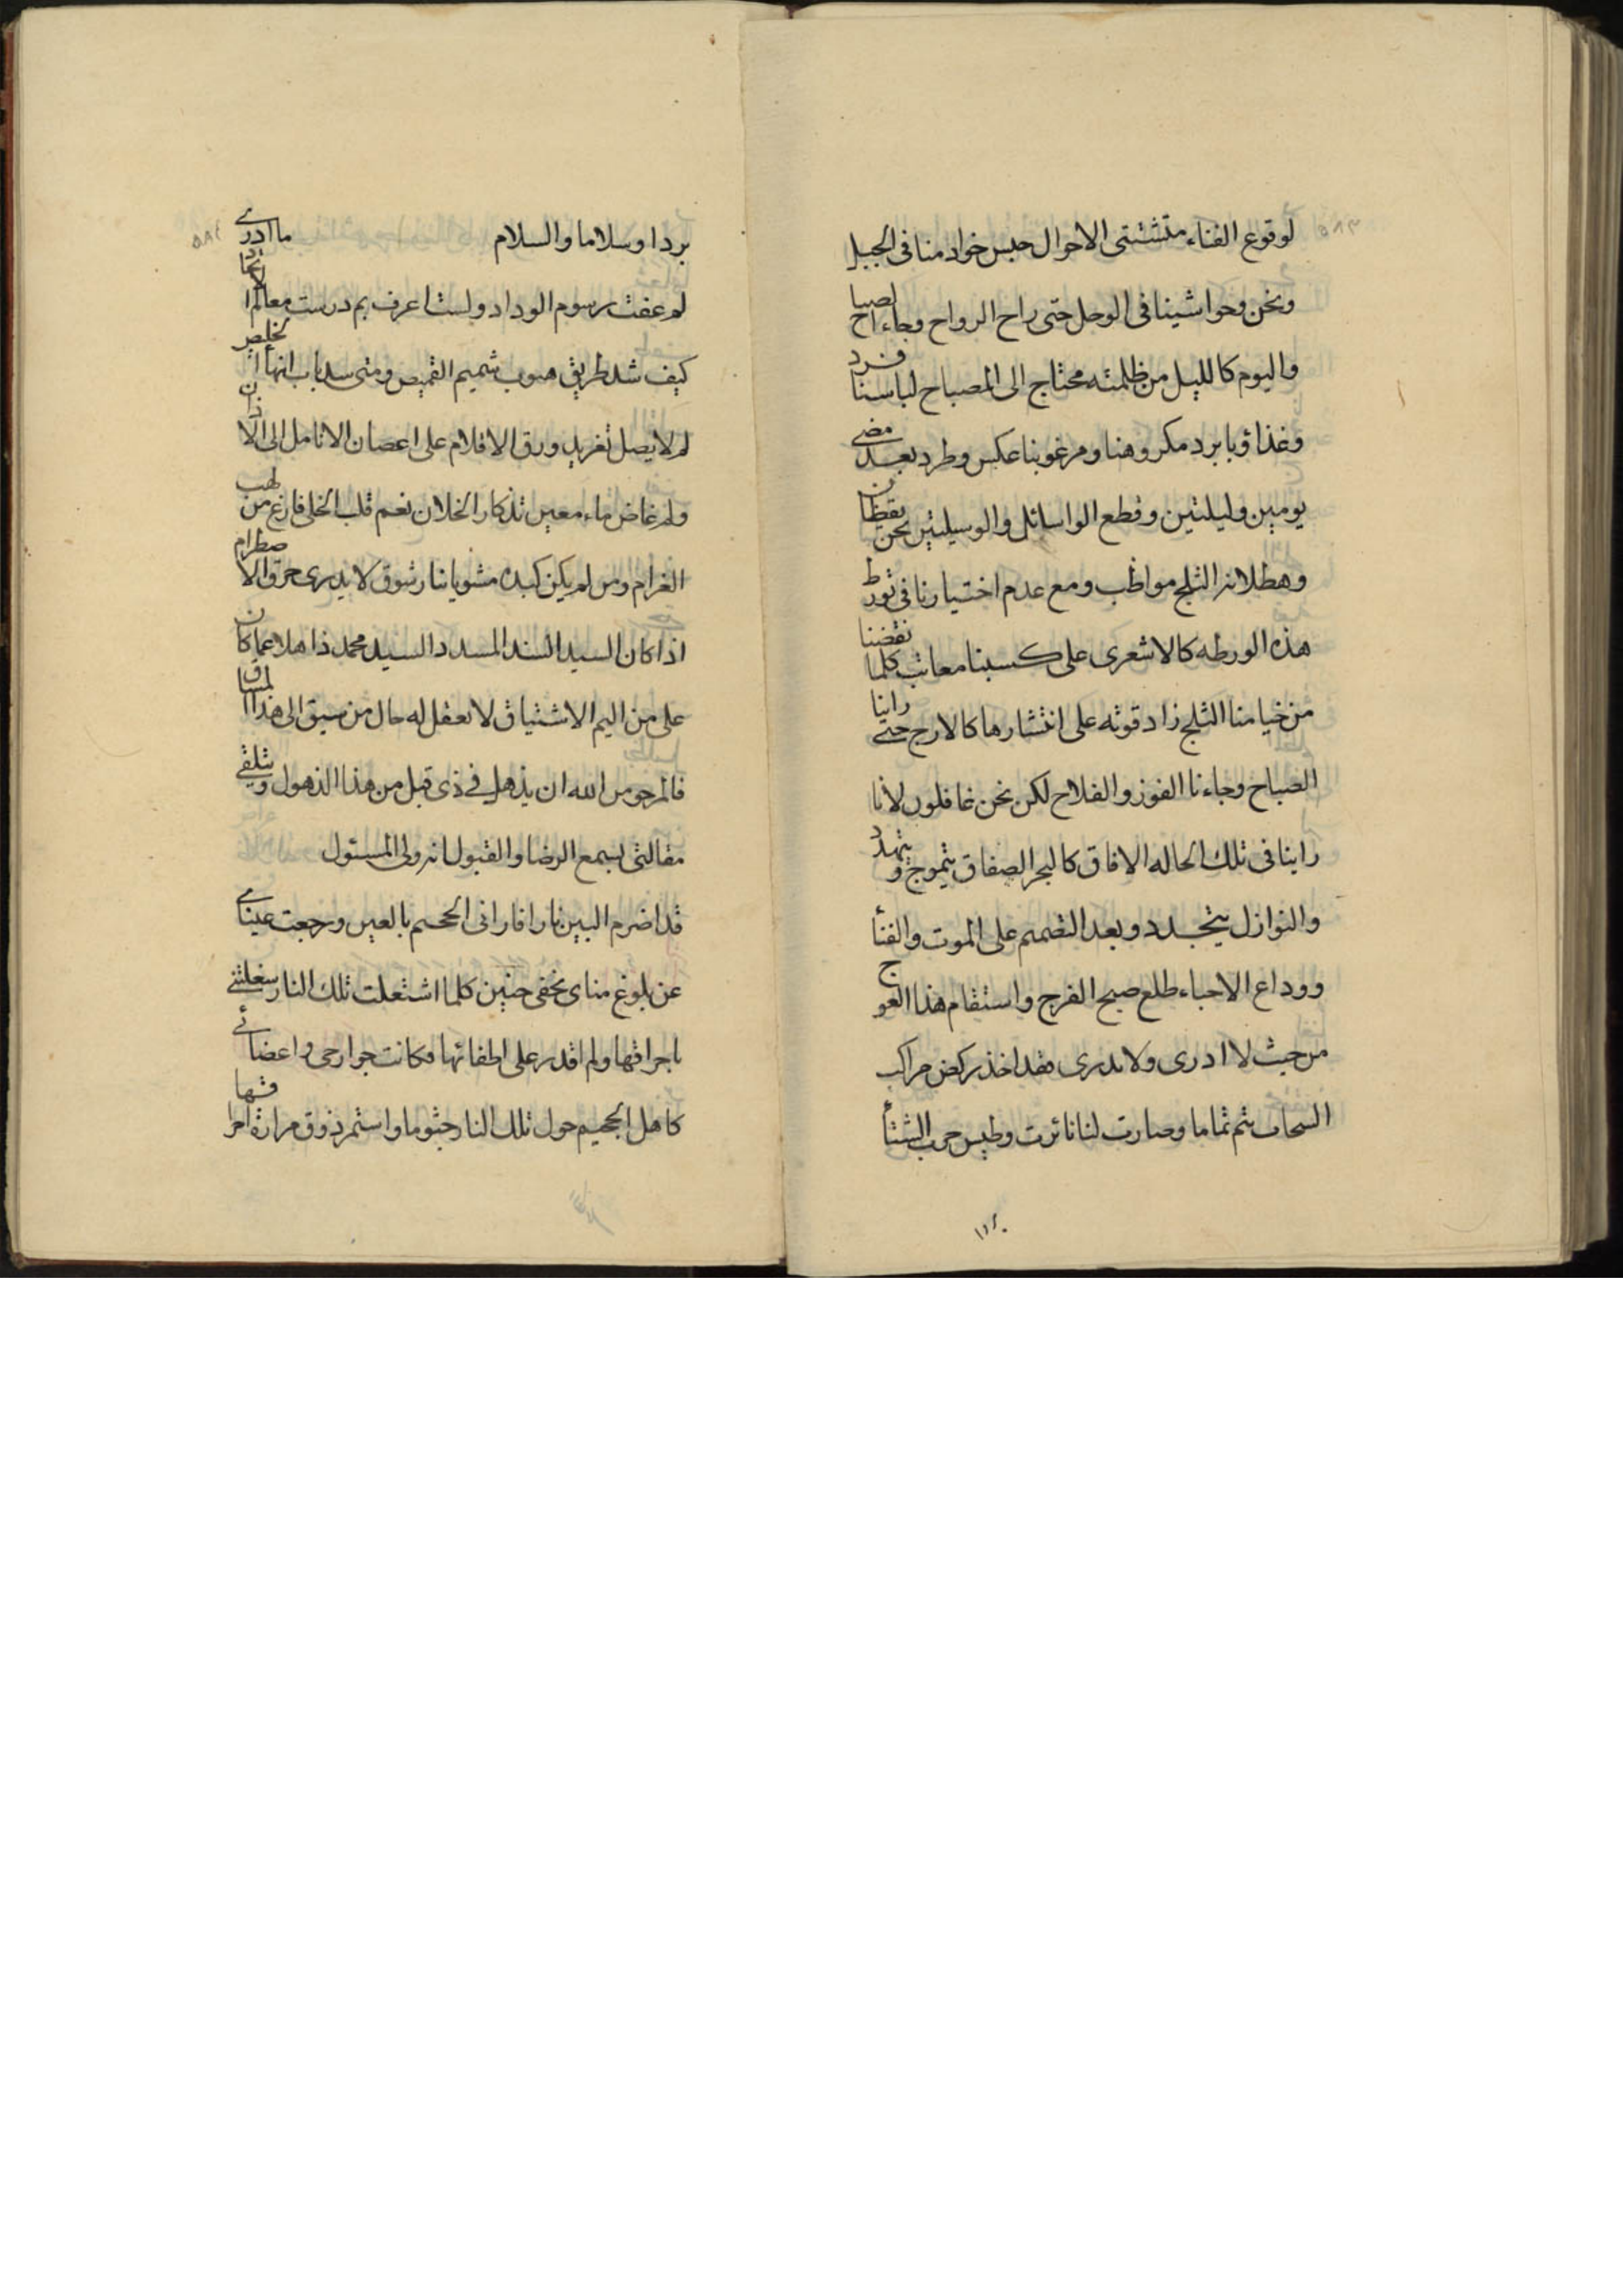 ٥٨٣
لوقوع الفناء متشتتى الاحوال حبس خوادمنا فى الجبل
ونحن وحواشينا فى الوحل حتى راح الرواح وجاء الصباح
واليوم كالليل من ظلمته محتاج الى المصباح لباسنا فرد
وغذاؤنا برد مكروهنا ومرغوبنا عكس وطرد بعد مضى
يومين وليلتين وقطع الوسائل والوسيلتين نحن يقظان
وهطلان الثلج مواظب ومع عدم اختيارنا فى تورط
هذه الورطه كالاشعرى على كسبنا معاتب كلما نفضنا
من خيامنا الثلج زاد قوته على انتشارها كالارج حتى راينا
الصباح وجاءنا الفوز والفلاح لكن نحن غافلون لانا
راينا فى تلك الحاله الافاق كالبحر الصفاق يتموج و يتمدد
والنوازل يتجدد وبعد التصميم على الموت والفناء
ووداع الاحباء طلع صبح الفرج واستقام هذا العوج
من حيث لا ادرى ولا يدرى فقد اخذ ركض مراكب
السحاب يتم تماما وصارت لنا نائرت وطيس حرب الشتاء
٥٨٤
بردا وسلاما والسلام ما ادرى
لم عفت رسوم الوداد ولست اعرف بم درست معالم الاتحاد
كيف شد طريق هبوب شميم القميص ومتى سد باب انهاء التخليص
لم لا يصل تغريد ورق الاقلام على اعصان الانامل الى الاذان
ولم غاض ماء معين تذكار الخلان نعم قلب الخلى فارغ من لهب
الغرام ومن لم يكن كبده مشويا بنار شوق لا يدرى حرق الاضطرام
اذا كان السيد السند المسدد السيد محمد ذاهلا عما كان
على من اليم الاشتياق لا يعقل له حال من سيق الى هذا المساق
فالمرجو من الله ان يذهل فى ذى قبل من هذا الذهول و يتلقى
مقالتى بسمع الرضا والقبول انه ولى المسئول
قد اضرم البين نارا فارانى الجحيم بالعين ورجعت عيناى
عن بلوغ مناى بخفى حنين كلما اشتعلت تلك النار شغلتنى
باحراقها ولم اقدر على اطفائها فكانت جوارحى واعضائى
كاهل الجحيم حول تلك النار جثوما واستمر ذوق مرارة احراقها